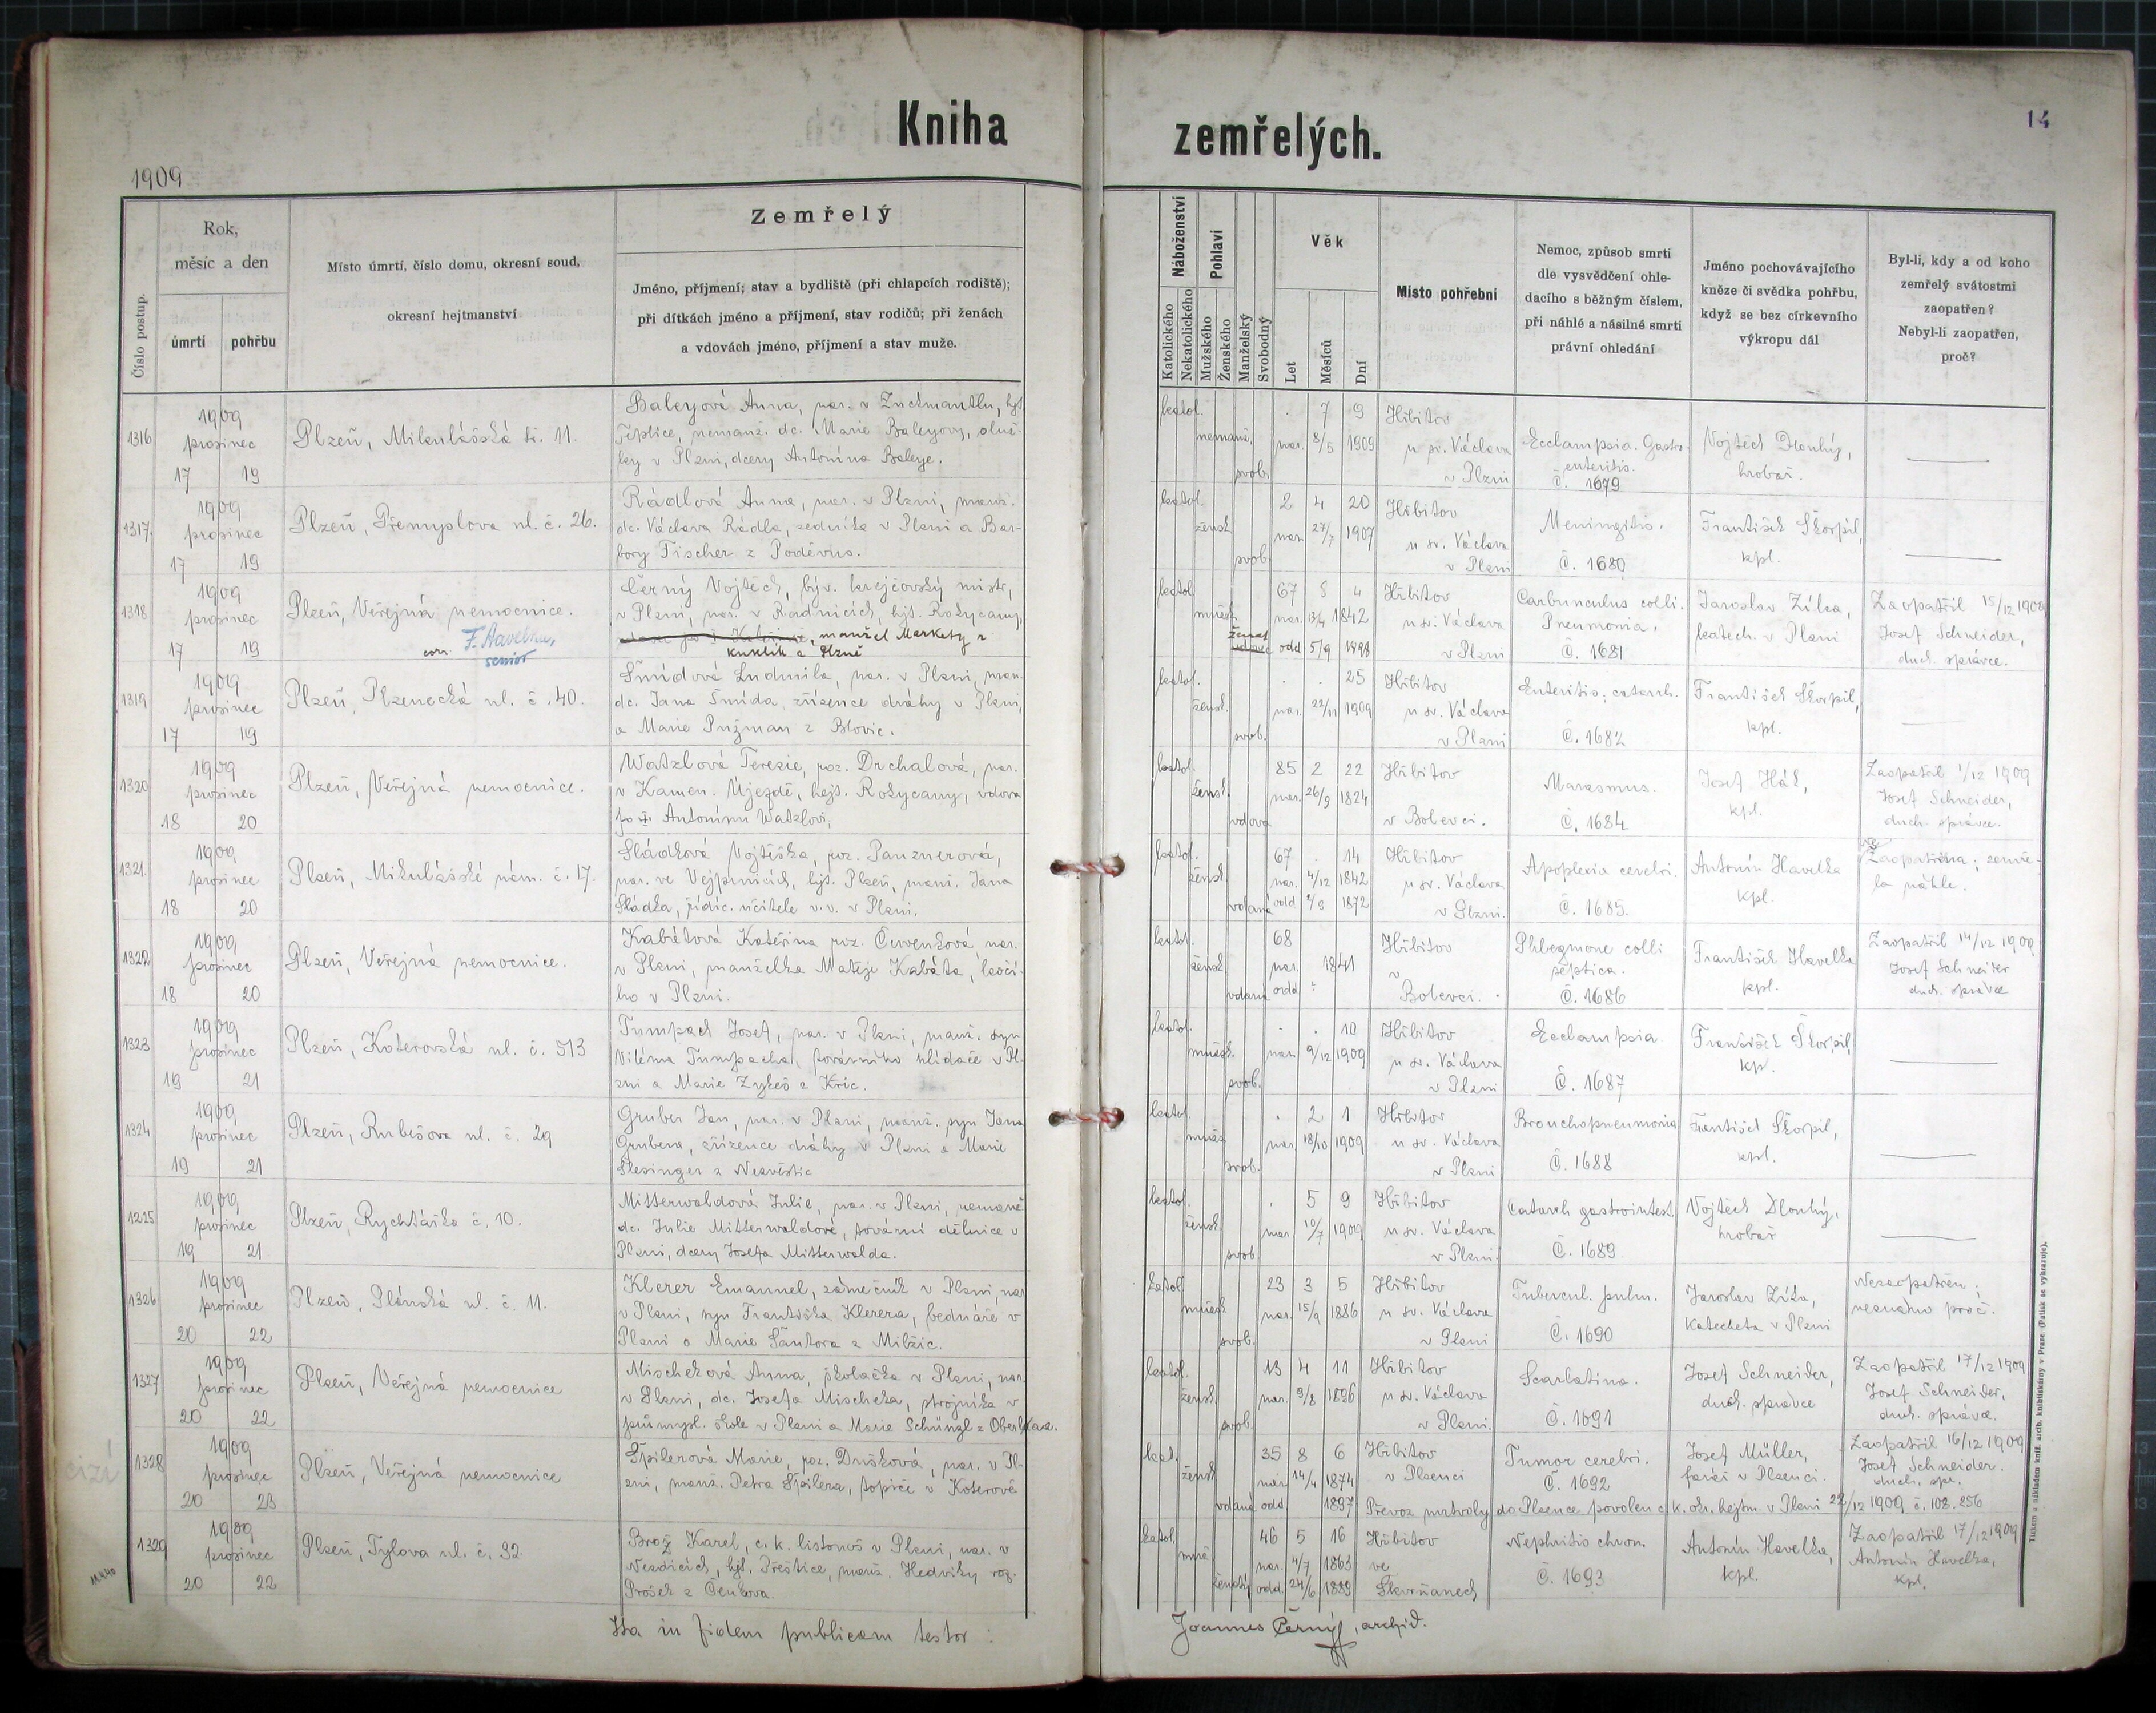 Kniha zemřelých.
14
1909
Číslo postup.
Rok,
měsíc a den
úmrtí
pohřbu
Místo úmrtí, číslo domu, okresní soud,
okresní hejtmanství
Zemřelý
Jméno, příjmení; stav a bydliště (při chlapcích rodiště);
při dítkách jméno a příjmení, stav rodičů; při ženách
a vdovách jméno, příjmení a stav muže.
Náboženství
Katolického
Nekatolického
Pohlaví
Mužského
Ženského
Manželský
Svobodný
Věk
Let
Měsíců
Dní
Místo pohřební
Nemoc, způsob smrti
dle vysvědčení ohle-
dacího s běžným číslem,
při náhlé a násilné smrti
právní ohledání
Jméno pochovávajícího
kněze či svědka pohřbu,
když se bez církevního
výkropu dál
Byl-li, kdy a od koho
zemřelý svátostmi
zaopatřen?
Nebyl-li zaopatřen,
proč?
1316
1909
prosinec
17 19
Plzeň, Mikulášská tř. 11.
Baleyová Anna, nar. v Zuckmantlu, hejt.
Teplice, nemanž. dc. Marie Baleyovy, služ-
ky v Plzni, dcery Antonína Baleye.
katol.
nemanž.
svob.
. 7 9
nar. 8/5 1909
Hřbitov
u sv. Václava
v Plzni
Ecclampsia. Gastro-
enteritis.
Č. 1679
Vojtěch Dlouhý,
hrobař.
1317.
1909
prosinec
17 19
Plzeň, Přemyslova ul. č. 26.
Rádlová Anna, nar. v Plzni, manž.
dc. Václava Rádla, zedníka v Plzni a Bar-
bory Fischer z Poděvus.
katol.
žensk.
svob.
2 4 20
nar. 27/7 1907
Hřbitov
u sv. Václava
v Plzni
Meningitis.
Č. 1680
František Škorpil,
kpl.
1318
1909
prosinec
17 19
Plzeň, Veřejná nemocnice.
corr. F. Havelka,
senior
Černý Vojtěch, býv. krejčovský mistr,
v Plzni, nar. v Radnicích, hejt. Rokycany,
manžel Markety r.
Kuklík z Plzně
katol.
mužsk.
ženat
67 8 4
nar. 13/4 1842
odd 5/9 1898
Hřbitov
u sv. Václava
v Plzni
Carbunculus colli.
Pneumonia.
Č. 1681
Jaroslav Zíka,
katech. v Plzni
Zaopatřil 15/12 1909
Josef Schneider,
duch. správce.
1319
1909
prosinec
17 19
Plzeň, Plzenecká ul. č. 40.
Šmídová Ludmila, nar. v Plzni, man.
dc. Jana Šmída, zřízence dráhy v Plzni,
a Marie Pužman z Blovic.
katol.
žensk.
svob.
. . 25
nar. 22/11 1909
Hřbitov
u sv. Václava
v Plzni
Enteritis; catarrh.
Č. 1682
František Škorpil,
kpl.
1320
1909
prosinec
18 20
Plzeň, Veřejná nemocnice.
Watzlová Terezie, roz. Drchalová, nar.
v Kamen. Újezdě, hejt. Rokycany, vdova
po † Antonínu Watzlovi,
katol.
žensk.
vdova
85 2 22
nar. 26/9 1824
Hřbitov
v Bolevci.
Marasmus.
Č. 1684
Josef Hák,
kpl.
Zaopatřil 1/12 1909
Josef Schneider,
duch. správce.
1321.
1909
prosinec
18 20
Plzeň, Mikulášské nám. č. 17.
Sládková Vojtěška, roz. Panznerová,
nar. ve Vejprnicích, hjt. Plzeň, manž. Jana
Sládka, řídíc. učitele v.v. v Plzni.
katol.
žensk.
vdaná
67 . 14
nar. 4/12 1842
odd 1872
Hřbitov
u sv. Václava
v Plzni.
Apoplexia cerebri.
Č. 1685.
Antonín Havelka
kpl.
Nezaopatřena; zemře-
la náhle.
1322
1909
prosinec
18 20
Plzeň, Veřejná nemocnice.
Kabátová Kateřina roz. Červenková nar.
v Plzni, manželka Matěje Kabáta, kočí-
ho v Plzni.
katol.
žensk.
vdaná
68
nar. 1841
odd ?
Hřbitov
v
Bolevci.
Phlegmone colli
septica.
Č. 1686
František Havelka
kpl.
Zaopatřil 14/12 1909
Josef Schneider
duch. správce
1323
1909
prosinec
19 21
Plzeň, Koterovská ul. č. 513
Tumpach Josef, nar. v Plzni, manž. syn
Viléma Tumpacha, továrního hlídače v Pl-
zni a Marie Zykeš z Kříc.
katol.
mužsk.
svob.
. . 10
nar. 9/12 1909
Hřbitov
u sv. Václava
v Plzni
Ecclampsia
Č. 1687
František Škorpil,
kpl.
1324
1909
prosinec
19 21
Plzeň, Rubešova ul. č. 29
Gruber Jan, nar. v Plzni, manž. syn Jana
Grubera, zřízence dráhy v Plzni a Marie
Slesinger z Nezvěstic
katol.
mužs.
svob.
. 2 1
nar. 18/10 1909
Hřbitov
u sv. Václava
v Plzni
Bronchopneumonia
Č. 1688
František Škorpil,
kpl.
1225
1909
prosinec
19 21
Plzeň, Rychtářka č. 10.
Mitterwaldová Julie, nar. v Plzni, nemanž.
dc. Julie Mitterwaldové, tovární dělnice v
Plzni, dcery Josefa Mitterwalda.
katol.
žensk.
svob
. 5 9
nar. 10/7 1909
Hřbitov
u sv. Václava
v Plzni.
Catarrh gastrointest.
Č. 1689
Vojtěch Dlouhý,
hrobař
1326
1909
prosinec
20 22
Plzeň, Plánská ul. č. 11.
Klerer Emanuel, zámečník v Plzni, nar.
v Plzni, syn Františka Klerera, bednáře v
Plzni a Marie Šantora z Milžic.
katol
mužsk.
svob.
23 3 5
nar. 15/9 1886
Hřbitov
u sv. Václava
v Plzni
Tubercul. pulm.
Č. 1690
Jaroslav Zíka,
Katecheta v Plzni
Nezaopatřen;
neznámo proč.
1327
1909
prosinec
20 22
Plzeň, Veřejná nemocnice
Mischeková Anna, školačka v Plzni, nar.
v Plzni, dc. Josefa Mischeka, strojníka v
průmysl. škole v Plzni a Marie Schünzl z
katol.
žensk.
svob.
13 4 11
nar. 9/8 1896
Hřbitov
u sv. Václava
v Plzni.
Scarlatina.
Č. 1691
Josef Schneider,
duch. správce
Zaopatřil 17/12 1909
Josef Schneider,
duch. správce.
cizí
1328
1909
prosinec
20 23
Plzeň, Veřejná nemocnice
Špilerová Marie, roz. Dušková, nar. v Pl-
zni, manž. Petra Špilera, topiče v Koterově
kat.
žensk
vdaná
35 8 6
nar. 14/4 1874
odd 1897
Hřbitov
v Plzenci
Tumor cerebri.
Č. 1692
Josef Müller,
farář v Plzenci.
Zaopatřil 16/12 1909
Josef Schneider.
duch. spr.
Převoz mrtvoly do Plzence povolen c. k. okr. hejtm. v Plzni 22/12 1909 č. 108.256
1329
1909
prosinec
20 22
Plzeň, Tylova ul. č. 32
Brož Karel, c. k. listonoš v Plzni, nar. v
Nezdicích, hjt. Přeštice, manž. Hedviky roz.
Prošek z Čenkova.
katol.
muž.
ženatý
46 5 16
nar. 4/7 1863
odd. 24/6 1889
Hřbitov
ve
Skvrňanech
Nephritis chron.
Č. 1693
Antonín Havelka,
kpl.
Zaopatřil 17/12 1909
Antonín Havelka,
kpl.
Ita in fidem publicam testor:
Joannes Černý, archid.